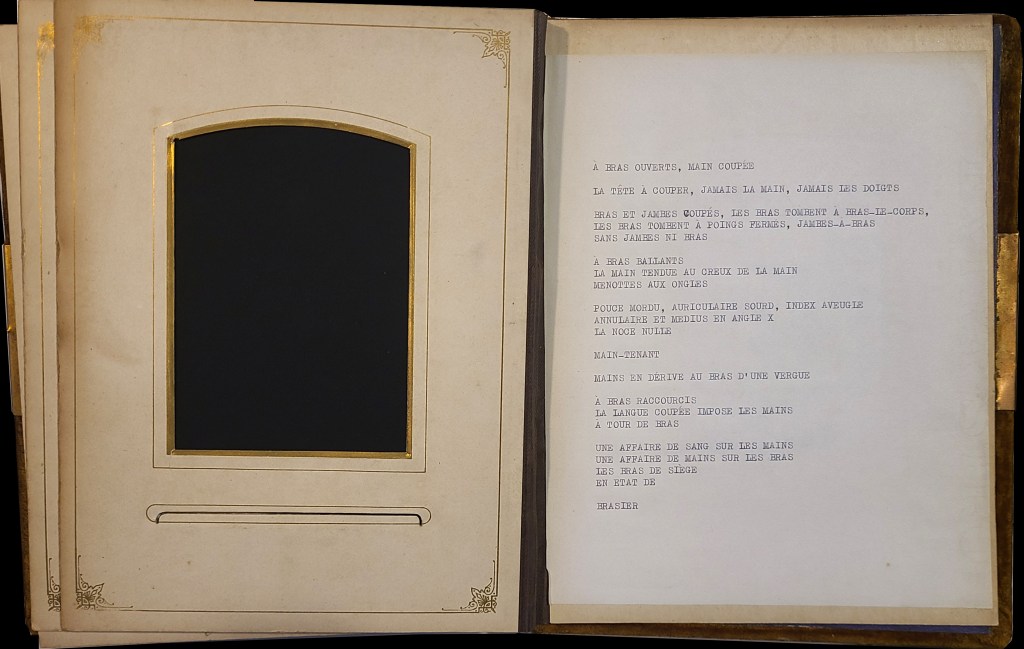 À BRAS OUVERTS, MAIN COUPÉE
LA TÊTE À COUPER, JAMAIS LA MAIN, JAMAIS LES DOIGTS
BRAS ET JAMBES COUPÉS, LES BRAS TOMBENT A BRAS-LE-CORPS,
LES BRAS TOMBENT A POINGS FERMES, JAMBES-A-BRAS
SANS JAMBES NI BRAS
À BRAS BALLANTS
LA MAIN TENDUE AU CREUX DE LA MAIN
MENOTTES AUX ONGLES
POUCE MORDU, AURICULAIRE SOURD, INDEX AVEUGLE
ANNULAIRE ET MEDIUS EN ANGLE X
LA NOCE NULLE
MAIN-TENANT
MAINS EN DÉRIVE AU BRAS D'UNE VERGUE
À BRAS RACCOURCIS
LA LANGUE COUPÉE IMPOSE LES MAINS
A TOUR DE BRAS
UNE AFFAIRE DE SANG SUR LES MAINS
UNE AFFAIRE DE MAINS SUR LES BRAS
LES BRAS DE SIÈGE
EN ETAT DE
BRASIER